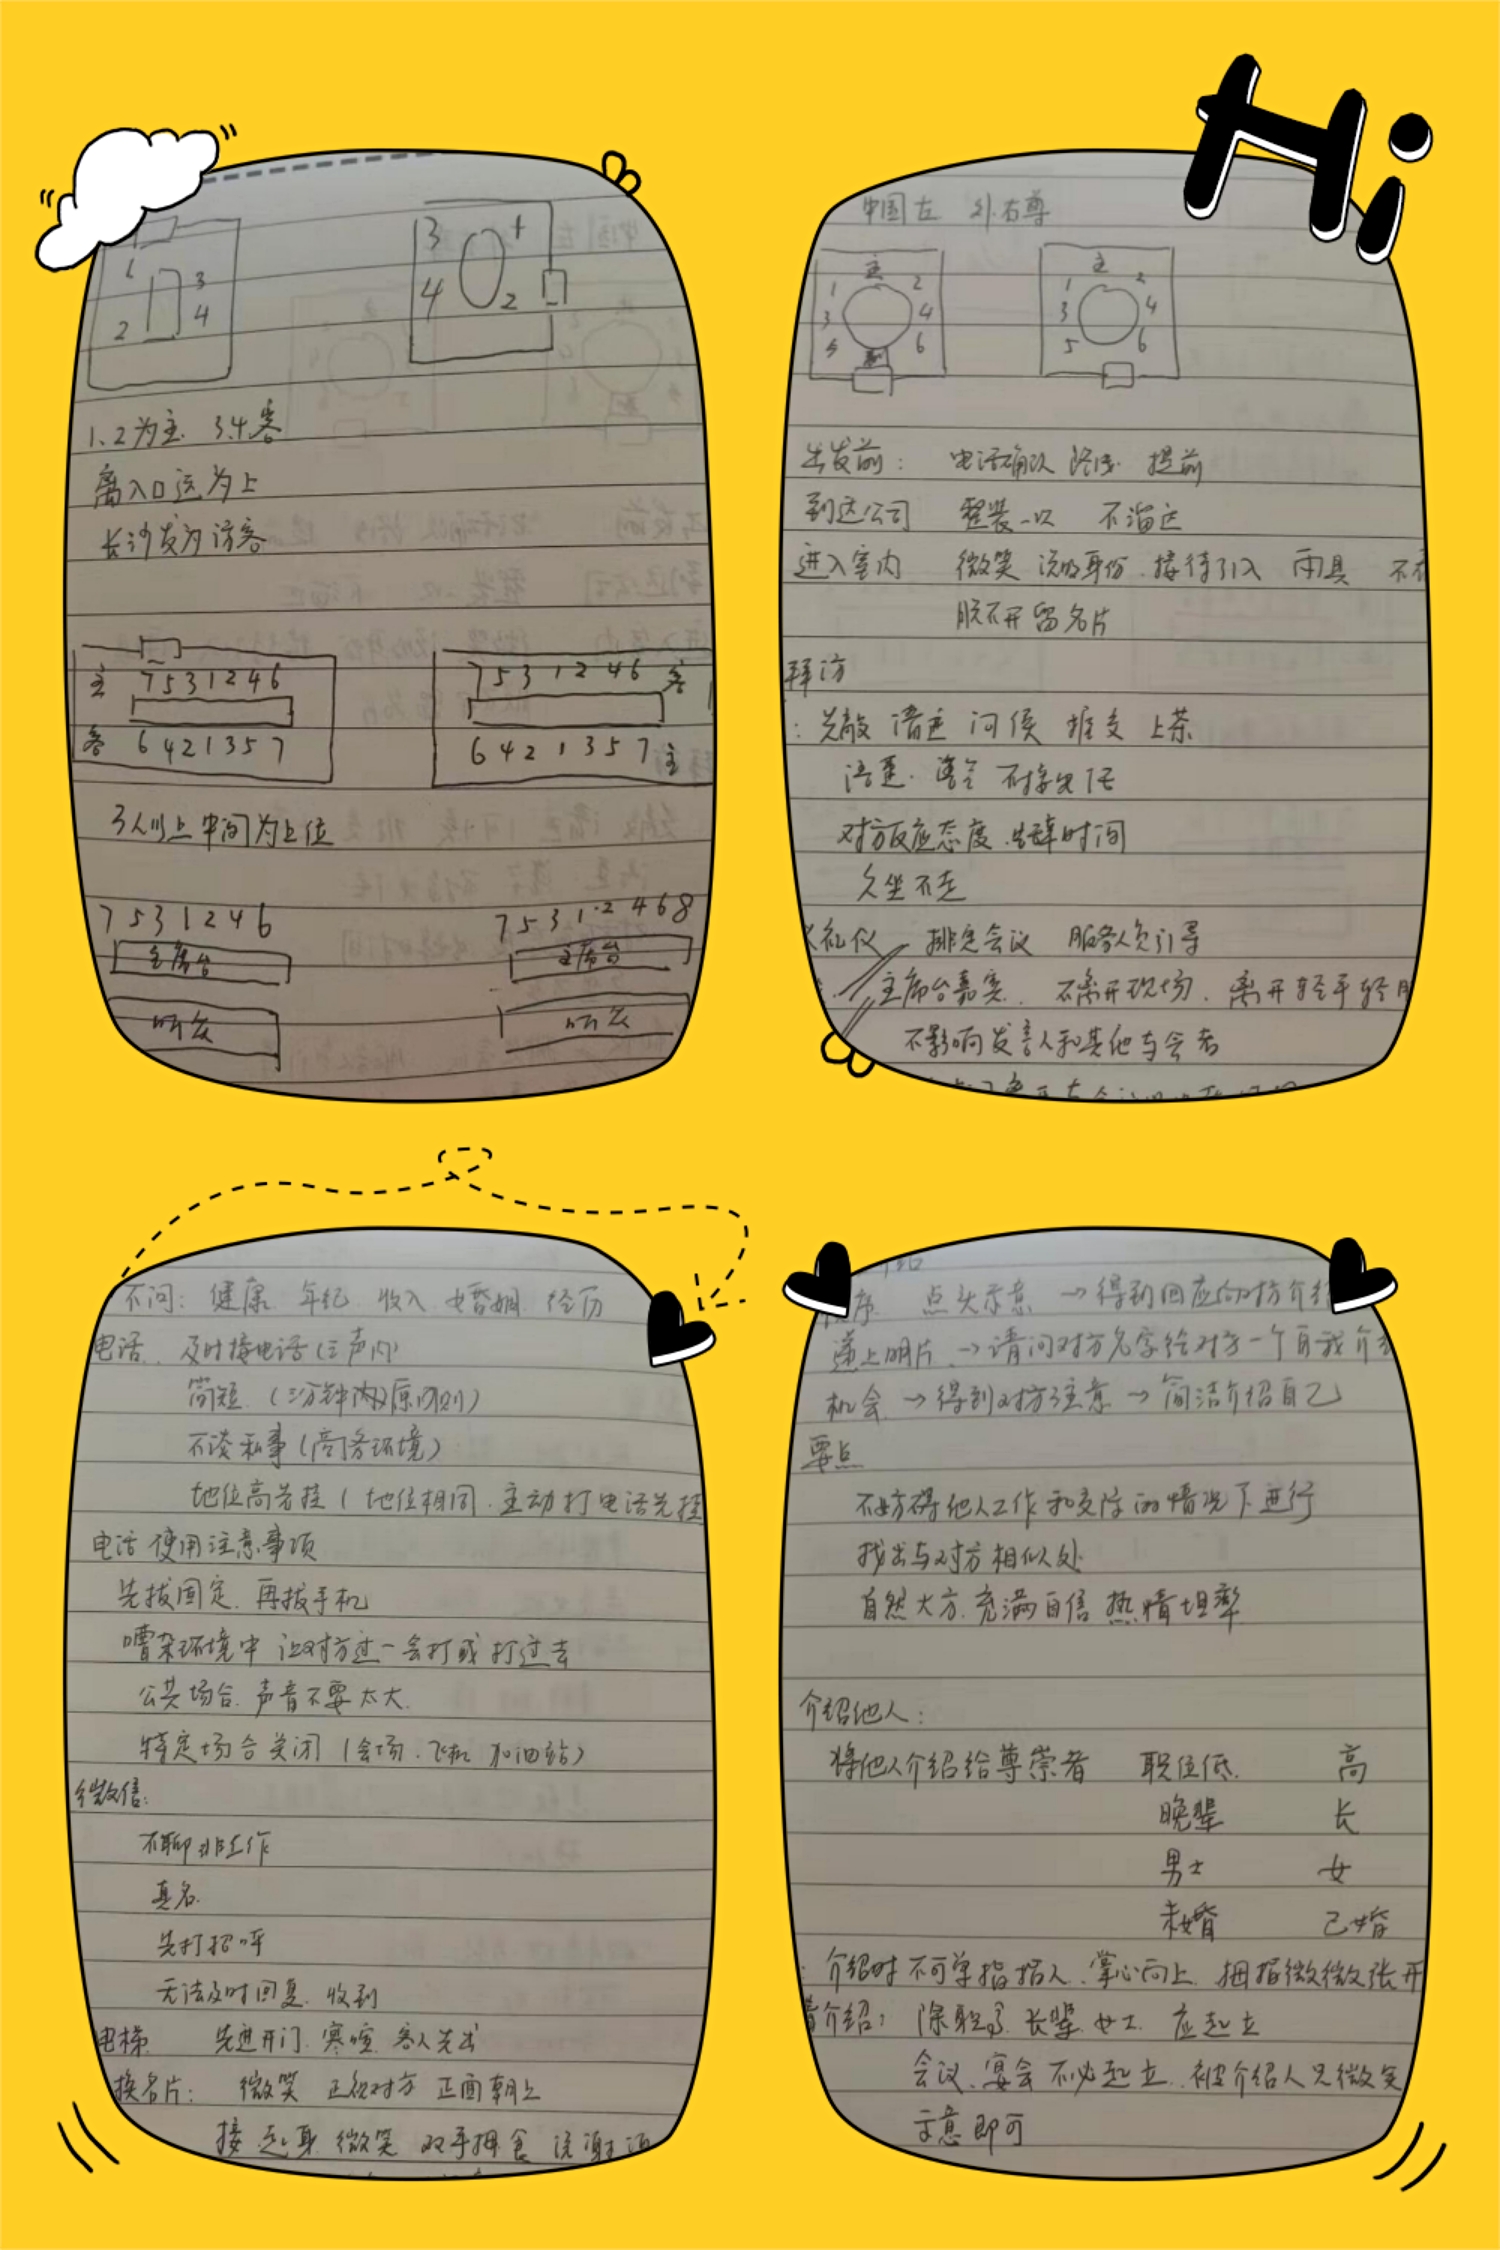 Hi
1
2
3
4
3
1
4
2
1、2为主 3.4客
离入口远为上
长沙发为访客
主 7 5 3 1 2 4 6
客 6 4 2 1 3 5 7
7 5 3 1 2 4 6 客
6 4 2 1 3 5 7 主
3人以上中间为上位
7 5 3 1 2 4 6
主席台
听众
7 5 3 1 2 4 6 8
主席台
听众
中国左 外右尊
主
1 2
3 4
5 6
副
主
1 2
3 4
5 6
出发前: 电话确认 路线 提前
到达公司 整装一次 不溜达
进入室内 微笑 说明身份、接待引入 雨具
脱不开留名片
拜访
: 先敲 请进 问候 推支 上茶
对方反应态度、告辞时间
久坐不走
礼仪 排定会议 服务人员引导
主席台嘉宾、不离开现场、离开轻手轻脚
不影响发言人和其他与会者
不问: 健康 年纪 收入 婚姻 经历
电话、及时接电话(三声内)
简短 (三分钟内原则)
不谈私事(商务环境)
地位高者挂(地位相同、主动打电话先挂
电话使用注意事项
先拔固定、再拔手机
嘈杂环境中 让对方过一会打或打过去
公共场合、声音不要太大、
特定场合关闭(会场、飞机 加油站)
微信:
不聊非工作
真名
先打招呼
无法及时回复、收到
电梯 先进开门、寒喧、客人先出
换名片: 微笑 正视对方 正面朝上
接 起身 微笑 双手拇食
序、点头示意 →得到回应向对方介绍
递上明片、→请问对方名字给对方一个自我介绍
机会 →得到对方注意 →简洁介绍自己
要点
不妨碍他人工作和交际的情况下进行
找出与对方相似处
自然大方、充满自信 热情坦率
介绍他人:
将他人介绍给尊崇者 职位低、 高
晚辈 长
男士 女
未婚 已婚
: 介绍时不可单指指人、掌心向上、拇指微微张开
介绍: 除职高、长辈、女士、应起立
会议、宴会不必起立、被介绍人只微笑
示意即可